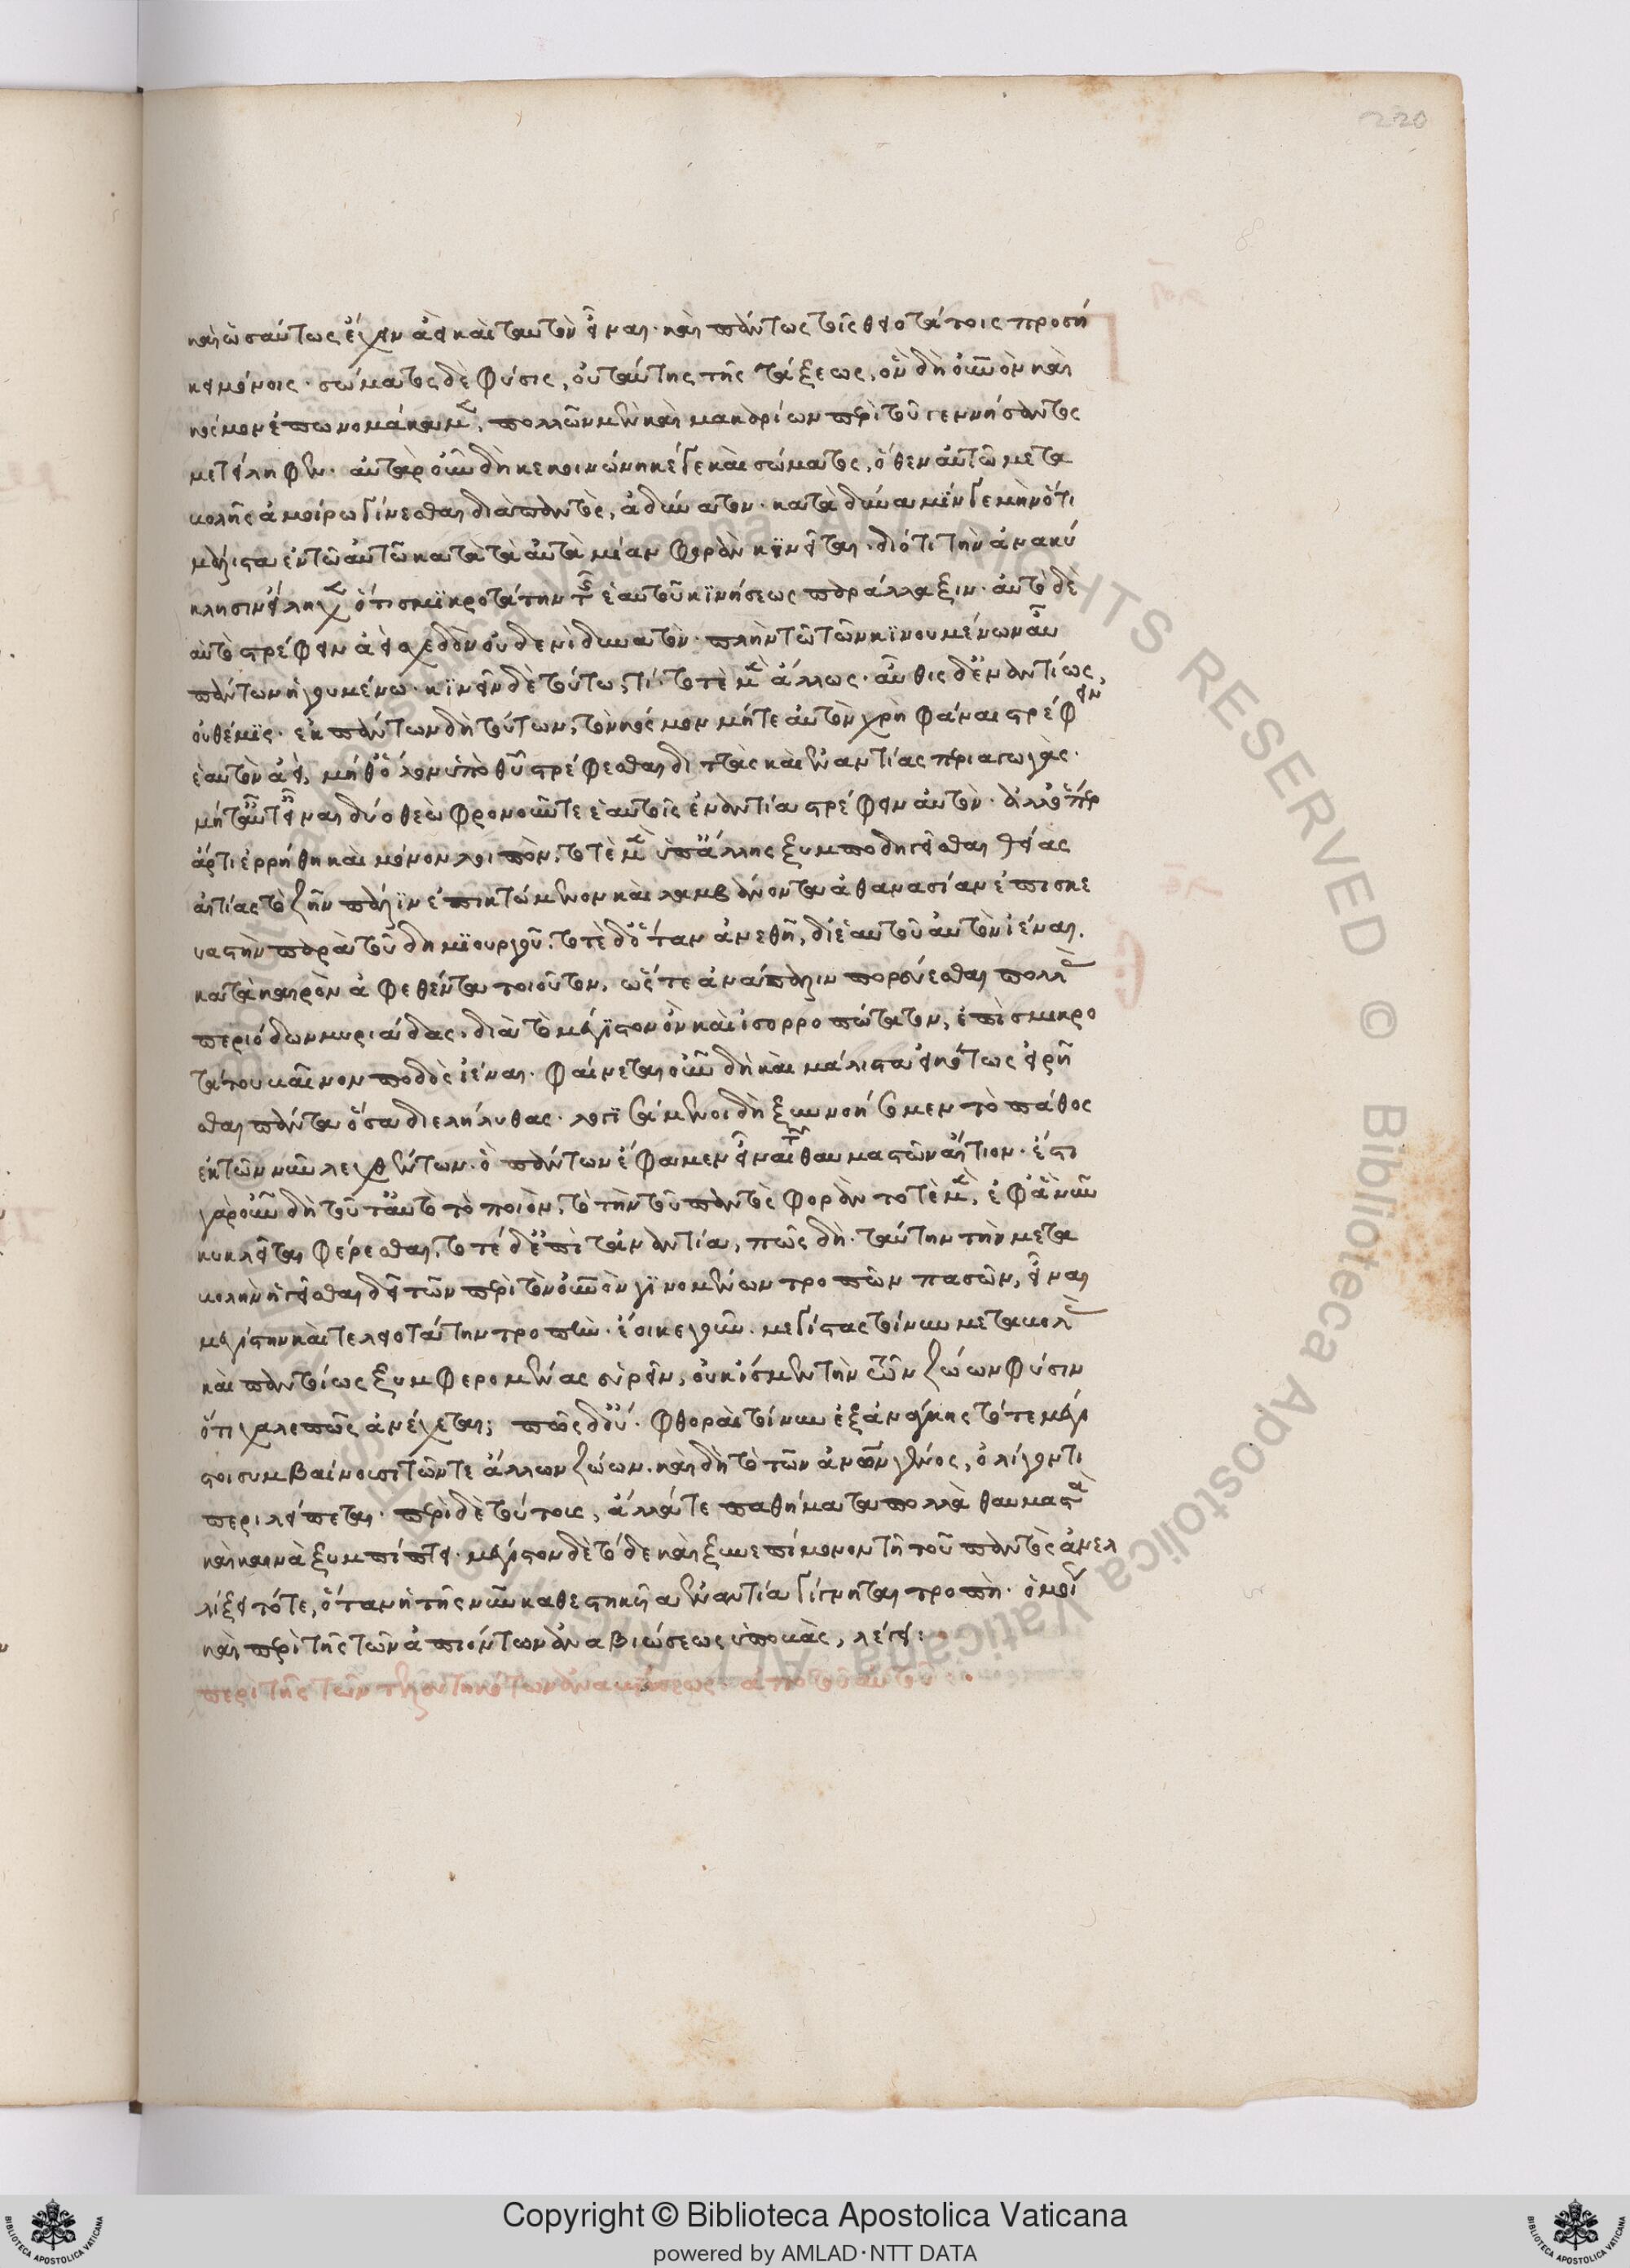 220
καὶ ὡσαύτως ἔχειν ἀεὶ καὶ ταυτὸν εἶναι· καὶ πάντως τοῖς θειοτάτοις προσή
κει μόνοις· σώματος δὲ φύσις, οὐ ταύτης τῆς τάξεως, ὃν δὴ οὐνὸν καὶ
κόσμον ἐπωνομάκαμεν, πολλῶν μὲν καὶ μακαρίων παρὰ τοῦ γεννήσαντος
μετείληφεν· αὐτὰρ οὖν δὴ κεκοινώνηκέ γε καὶ σώματος, ὅθεν αὐτῷ μετα
βολῆς ἀμοίρω γίνεσθαι διὰ παντὸς, ἀδύνατον· κατὰ δύναμϊν γε μὴν ὅτι
μάλιστα ἐν τῷ αὐτῷ κατὰ τὰ αὐτὰ μίαν φορὰν κϊνεῖται· διότι τὴν ἀνακύ
κλησιν εἴληχεν ὅτι σμϊκροτάτην τῆς ἑαυτοῦ κϊνήσεως παράλλαξιν· αὐτὸ δὲ
αὑτὸ στρέφειν ἀεὶ σχεδὸν οὐδενὶ δυνατὸν· πλὴν τῷ τῶν κϊνουμένων αὖ
πάντων ἡγουμένω· κϊνεῖν δὲ τούτω, τί· τοτὲ μὲν ἄλλως· αὖθις δὲ ἐναντίως,
οὐ θέμϊς· ἐκ πάντων δὴ τούτων, τὸν κόσμον μήτε αὐτὸν χρὴ φάναι στρέφειν
ἑαυτὸν ἀεὶ, μήθ' ὅλον ὑπὸ θεοῦ στρέφεσθαι διττὰς καὶ ἐναντίας περιαγωγάς·
μήτ' αὖ τ' εἶναι δύο θεὼ φρονοῦντε ἑαυτοῖς ἐναντία στρέφειν αὐτὸν· ἀλλ' ὅπερ
ἄρτι ἐρρήθη καὶ μόνον λοιπὸν, τοτὲ μὲν ὑπ' ἄλλης ξυμποδηγεῖσθαι θείας
αἰτίας τὸ ζῆν πάλϊν ἐπικτώμενον καὶ λαμβάνοντα ἀθανασίαν ἐπισκε
υαστὴν παρὰ τοῦ δημϊουργοῦ. τοτὲ δ' ὅταν ἀνεθῆ, δι' ἑαυτοῦ αὐτὸν ἰέναι.
κατὰ καιρὸν ἀφεθέντα τοιοῦτον, ὥστε ἀνάπαλιν πορεύεσθαι πολλὰς
περιόδων μυριάδας. διὰ τὸ μέγϊστον ὂν καὶ ἰσορροπώτατον, ἐπὶ σμικρο
τάτου βαῖνον ποδὸς ἰέναι· φαίνεται οὖν δὴ καὶ μάλιστα εἰκότως εἰρῆ
σθαι πάντα ὅσα διελήλυθας· λογϊσάμενοι δὴ ξυννοήσωμεν τὸ πάθος
ἐκ τῶν νῦν λεχθέντων. ὃ πάντων ἔφαμεν εἶναι τῶν θαυμαστῶν αἴτιον· ἔστι
γὰρ οὖν δὴ τοῦτ' αὐτὸ τὸ ποιὸν, τὸ τὴν τοῦ παντὸς φορὰν τοτὲ μὲν, ἐφ' ἃ νῦν
κυκλεῖται φέρεσθαι, τοτὲ δ' ἐπὶ τἀναντία, πῶς δὴ· ταύτην τὴν μετα
βολὴν ἡγεῖσθαι δεῖ τῶν περὶ τὸν οὐνὸν γϊνομένων τροπῶν πασῶν, εἶναι
μεγίστην καὶ τελειοτάτην τροπὴν· ἔοικε γοῦν. μεγίστας τοίνυν μεταβολὰς
καὶ παντοίως ξυμφερομένας εὑρεῖν, οὐκ ἴσμεν τὴν τῶν ζώων φύσιν
ὅτι χαλεπῶς ἀνέχεται; πῶς δ' οὔ· φθοραὶ τοίνυν ἐξ ἀνάγκης τότε μέγι
στοι συμβαίνουσι τῶν τε ἄλλων ζώων. καὶ δὴ τὸ τῶν ἀνων γένος, ὀλίγον τι
περιλείπεται· περὶ δὲ τούτοις, ἄλλά τε παθήματα πολλὰ θαυμαστὰ
καὶ καινὰ ξυμπίπτει· μέγιστον δὲ τόδε καὶ ξυνεπόμενον τῆ τοῦ παντὸς ἀνελ
λίξει τότε, ὅταν ἡ τῆς νῦν καθεστηκυίας ἐναντία γίγνηται τροπὴ· ὁμοῦ
καὶ περὶ τῆς τῶν ἀπιόντων ἀναβιώσεως ὑποβὰς, λέγει:
Copyright © Biblioteca Apostolica Vaticana
powered by AMLAD·NTT DATA